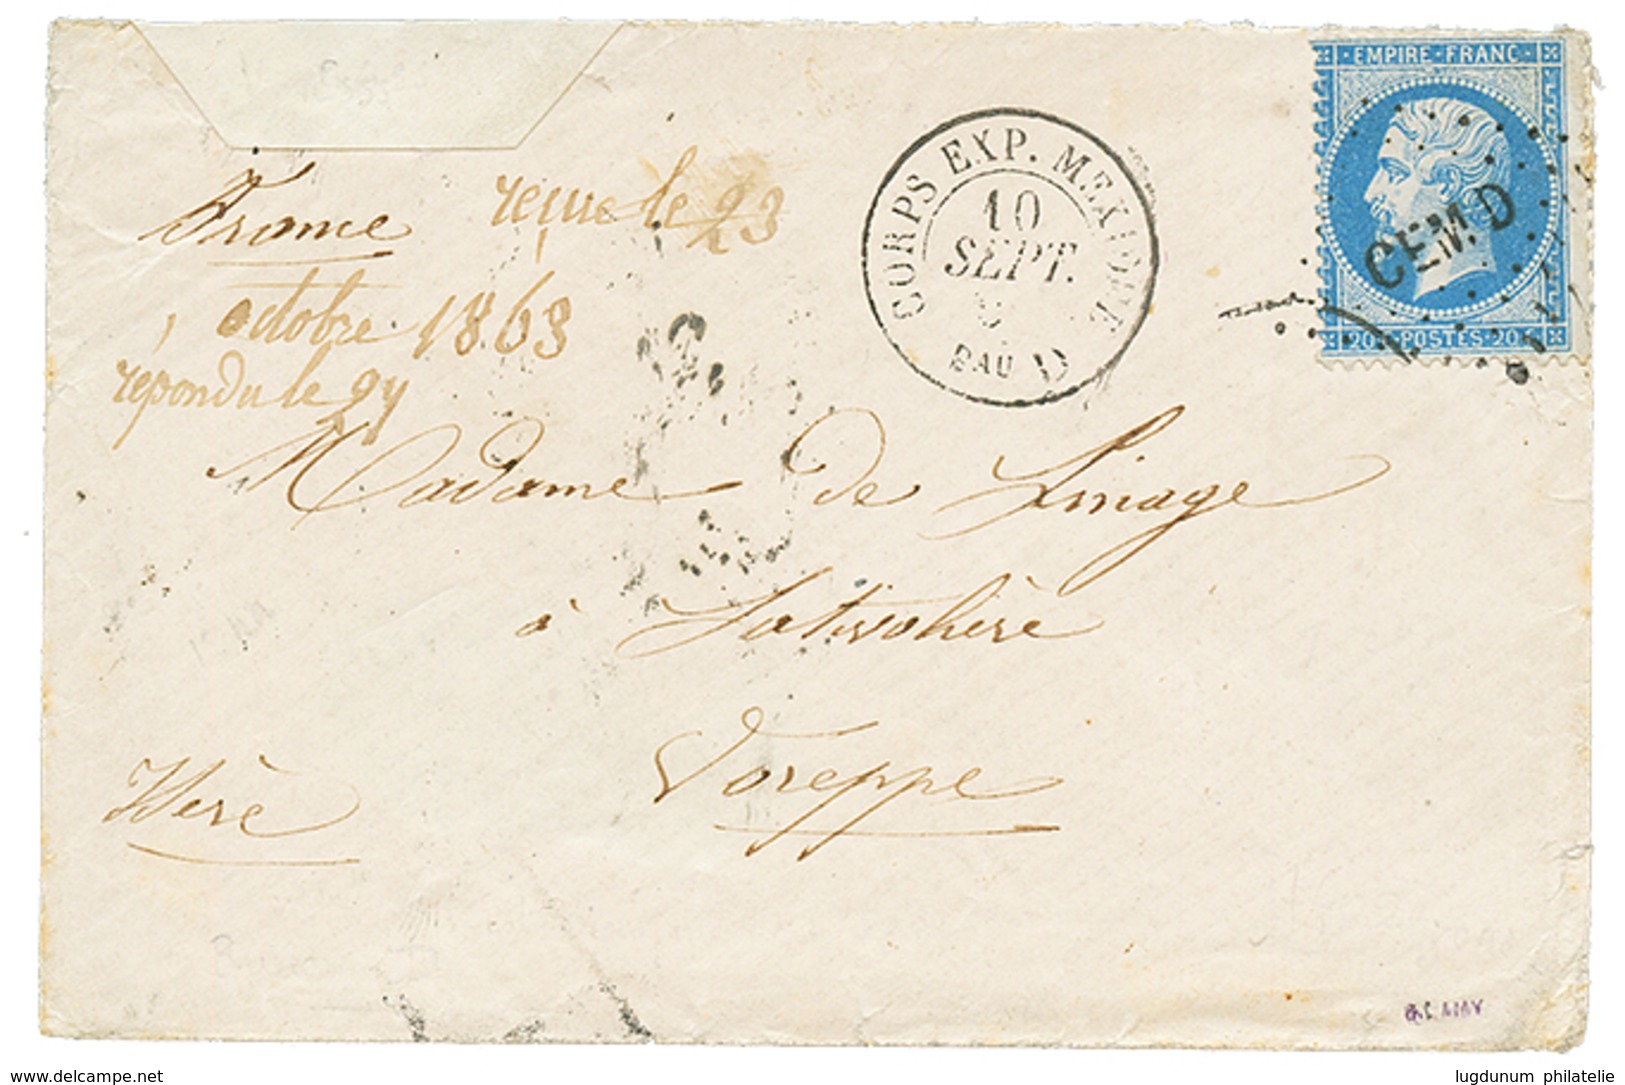 EMPIRE FRANC
CORPS EXP. MEXIQUE
10
SEPT.
BAU D
CEM. D
20c POSTES 20c
France reçue le 23
octobre 1863
répondu le 24
Madame de Linage
à
Voreppe
Isère
delcampe.net
lugdunum philatelie